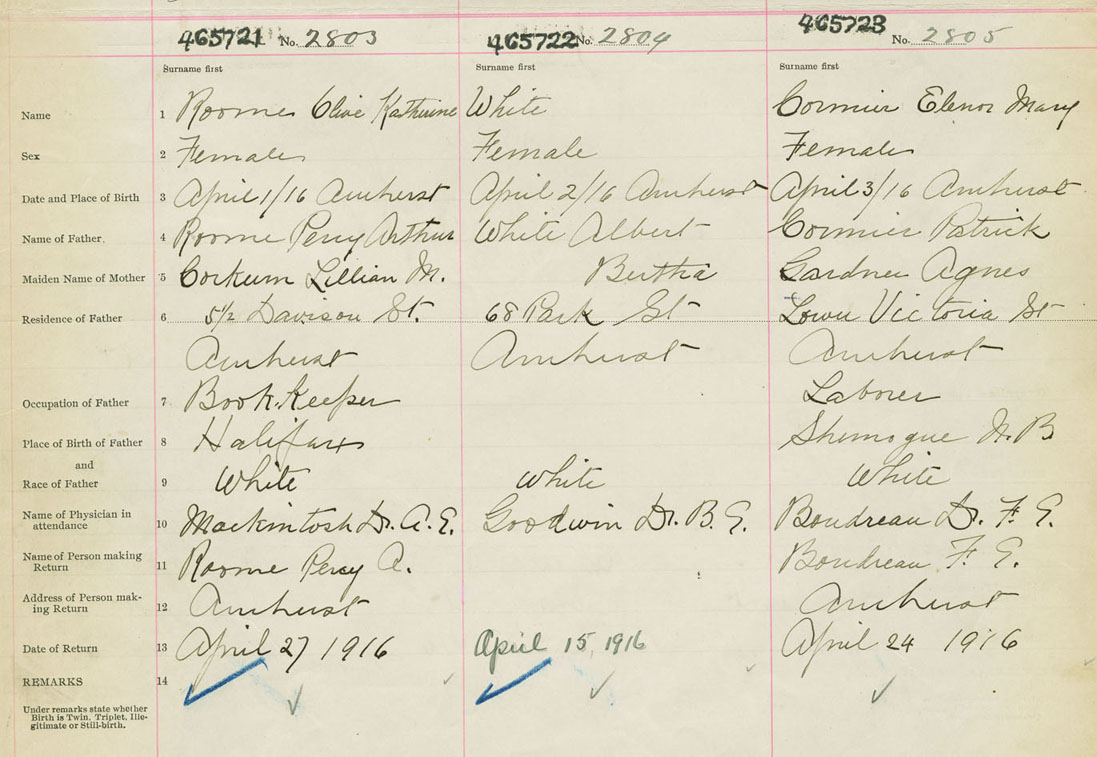 465721 No. 2803 465722 No. 2804 465723 No. 2805
Surname first Surname first Surname first
Name 1 Roome Olive Katherine White Cormier Elenor Mary
Sex 2 Female Female Female
Date and Place of Birth 3 April 1/16 Amherst April 2/16 Amherst April 3/16 Amherst
Name of Father. 4 Roome Percy Arthur White Albert Cormier Patrick
Maiden Name of Mother 5 Corkum Lillian M. Bertha Gardner Agnes
Residence of Father 6 5 1/2 Davison St. 68 Park St Lower Victoria St
Amherst Amherst Amherst
Occupation of Father 7 Book.Keeper Laborer
Place of Birth of Father 8 Halifax Shemogue N.B
and
Race of Father 9 White White White
Name of Physician in
attendance 10 Mackintosh Dr. A. E. Goodwin Dr. B. E. Boudreau Dr. F. E.
Name of Person making
Return 11 Roome Percy A. Boudreau F. E.
Address of Person mak-
ing Return 12 Amherst Amherst
Date of Return 13 April 27 1916 April 15, 1916 April 24 1916
REMARKS 14
Under remarks state whether
Birth is Twin, Triplet, Ille-
gitimate or Still-birth.